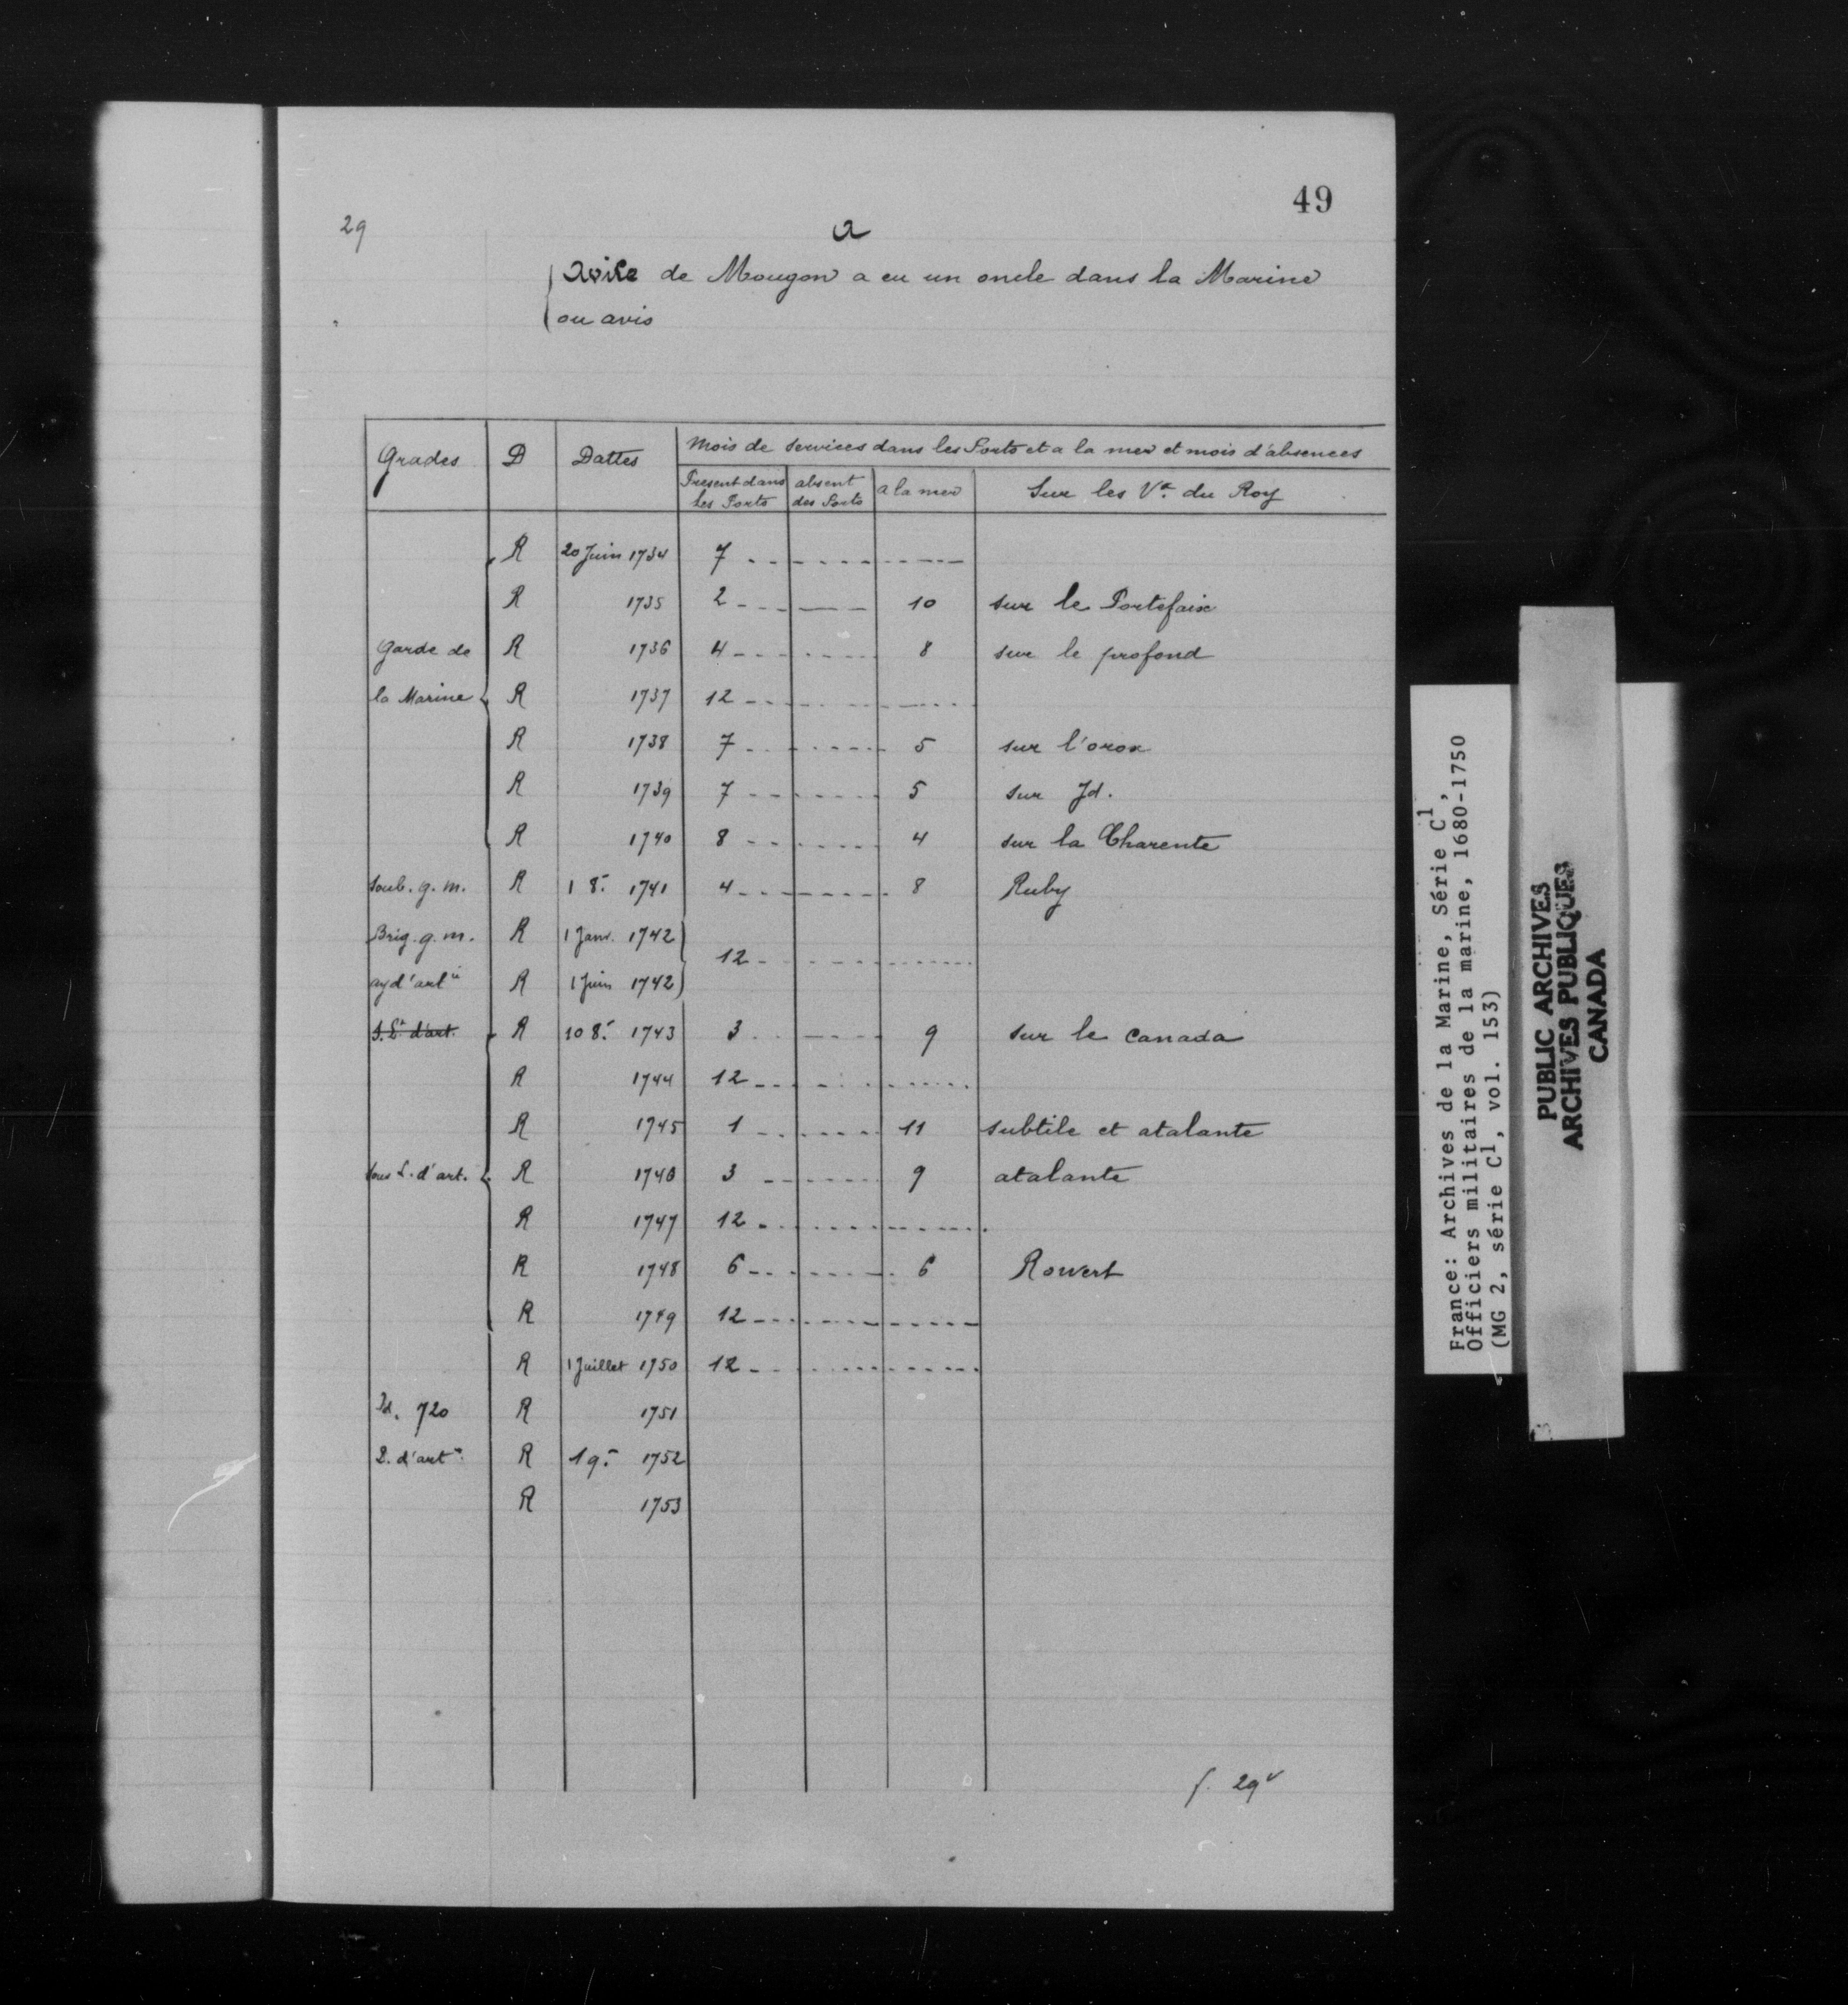 49
29
a
Avice de Mougon a eu un oncle dans la Marine
ou avis
Grades D Dattes Mois de services dans les Ports et a la mer et mois d'absences
Present dans les Ports absent des Ports a la mer Sur les Vx. du Roy
R 20 Juin 1734 7
R 1735 2 10 sur le Portefaix
Garde de R 1736 4 8 sur le profond
la Marine R 1737 12
R 1738 7 5 sur l'orox
R 1739 7 5 sur Id.
R 1740 8 4 sur la Charente
soub. g. m. R 1 8.r 1741 4 8 Ruby
Brig. g. m. R 1 Janv. 1742
12
ayd'artie R 1 Juin 1742
S. Lt. d'art. R 10 8.r 1743 3 9 sur le Canada
R 1744 12
R 1745 1 11 subtile et atalante
sous L. d'art. R 1746 3 9 atalante
R 1747 12
R 1748 6 6 Rowert
R 1749 12
R 1 Juillet 1750 12
Id. 720 R 1751
L. d'art. R 1 9.r 1752
R 1753
f. 29v
France: Archives de la Marine, Série C1,
Officiers militaires de la marine, 1680-1750
(MG 2, série C1, vol. 153)
PUBLIC ARCHIVES
ARCHIVES PUBLIQUES
CANADA